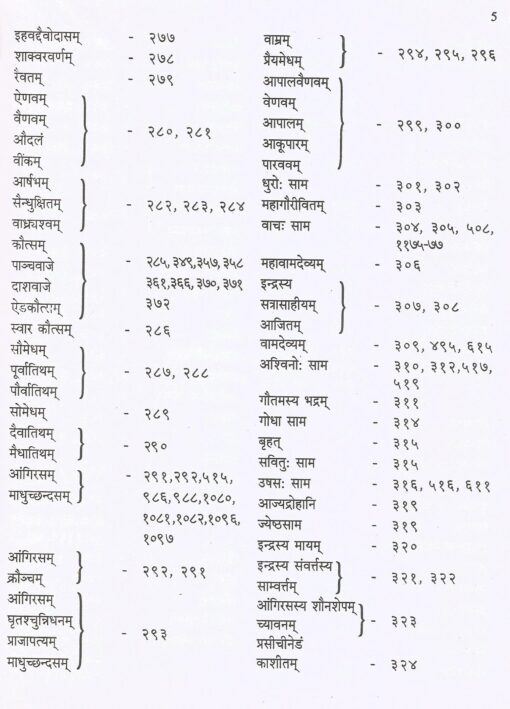 5
इहवद्दैवोदासम् - २७७
शाक्वरवर्णम् - २७८
रैवतम् - २७९
ऐणवम्
वैणवम्
औदलं - २८०, २८१
वींकम्
आर्षभम्
सैन्धुक्षितम् - २८२, २८३, २८४
वाध्र्यश्वम्
कौत्सम्
पाञ्चवाजे - २८५,३४९,३५७,३५८
दाशवाजे ३६१,३६६,३७०,३७१
ऐडकौत्सम् ३७२
स्वार कौत्सम् - २८६
सौमेधम्
पूर्वातिथम् - २८७, २८८
पौर्वातिथम्
सोमेधम् - २८९
दैवातिथम्
मैधातिथम् - २९०
आंगिरसम् - २९१,२९२,५१५,
माधुच्छन्दसम् ९८६,९८८,१०८०,
१०८१,१०८२,१०९६,
१०९७
आंगिरसम्
क्रौञ्चम् - २९२, २९१
आंगिरसम्
घृतश्चुन्निधनम्
प्राजापत्यम् - २९३
माधुच्छन्दसम्
वाम्रम्
प्रैयमेधम् - २९४, २९५, २९६
आपालवैणवम्
वेणवम्
आपालम् - २९९, ३००
आकूपारम्
पारववम्
धुरोः साम - ३०१, ३०२
महागौरीवितम् - ३०३
वाचः साम - ३०४, ३०५, ५०८,
११७५-७७
महावामदेव्यम् - ३०६
इन्द्रस्य
सत्रासाहीयम् - ३०७, ३०८
आजितम्
वामदेव्यम् - ३०९, ४९५, ६१५
अश्विनोः साम - ३१०, ३१२,५१७,
५१९
गौतमस्य भद्रम् - ३११
गोधा साम - ३१४
बृहत् - ३१५
सवितुः साम - ३१५
उषसः साम - ३१६, ५१६, ६११
आज्यद्रोहानि - ३१९
ज्येष्ठसाम - ३१९
इन्द्रस्य मायम् - ३२०
इन्द्रस्य संवर्त्तस्य
साम्वर्त्तम् - ३२१, ३२२
आंगिरसस्य शौनशेपम्
च्यावनम् - ३२३
प्रसीचीनेडं
काशीतम् - ३२४